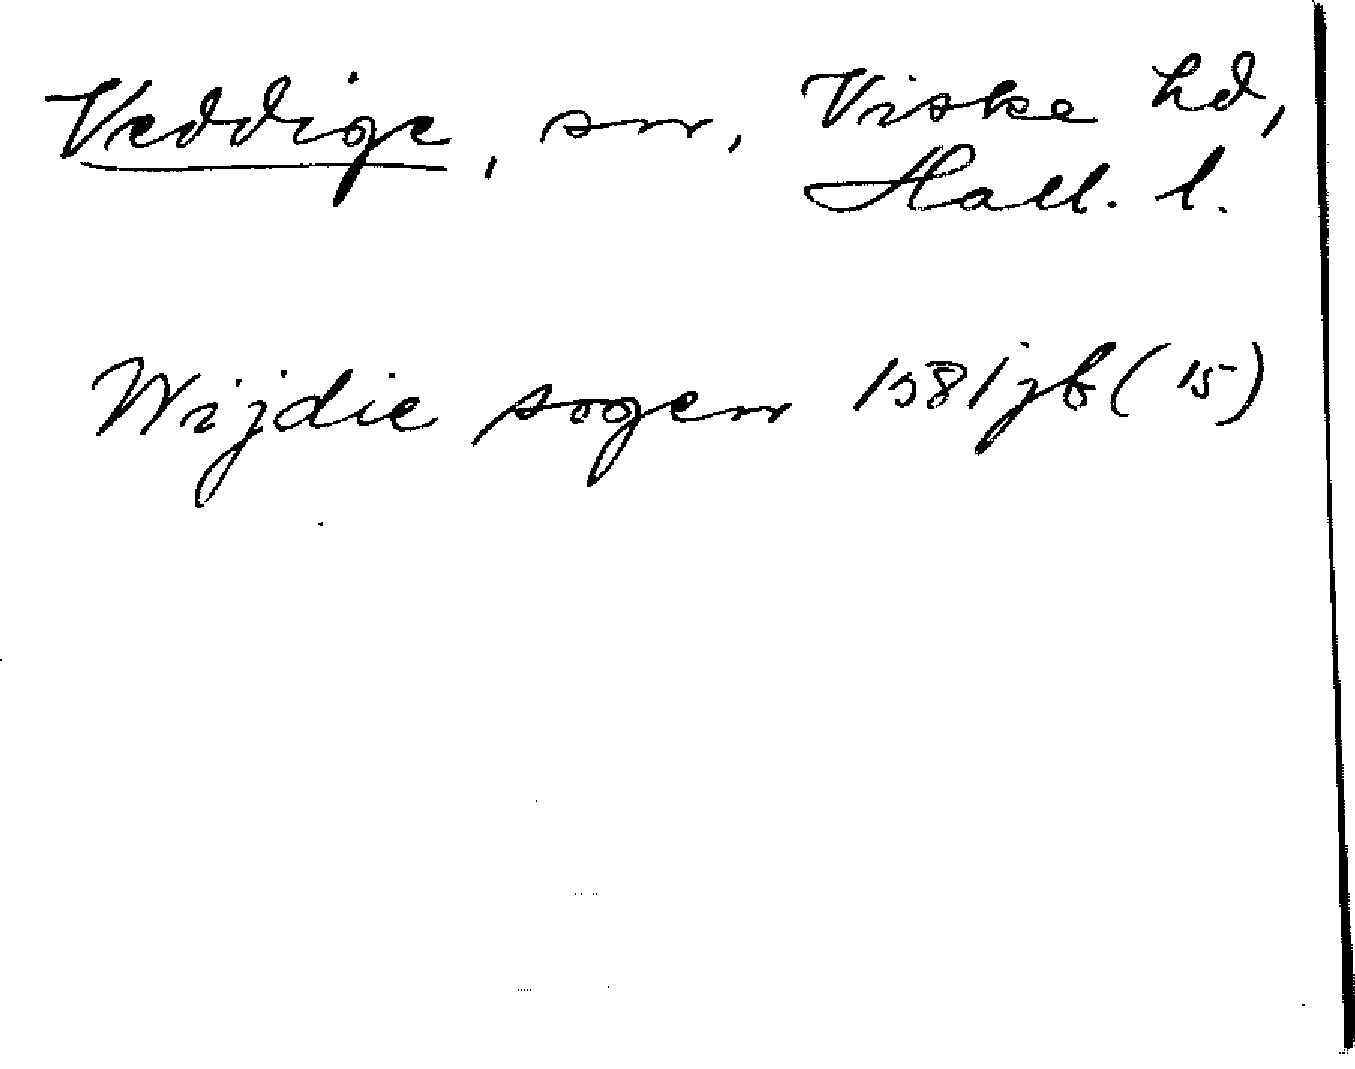 Veddige, sn, Viske hd,
Hall. l.
Wijdie sogen 1581 jb (15)